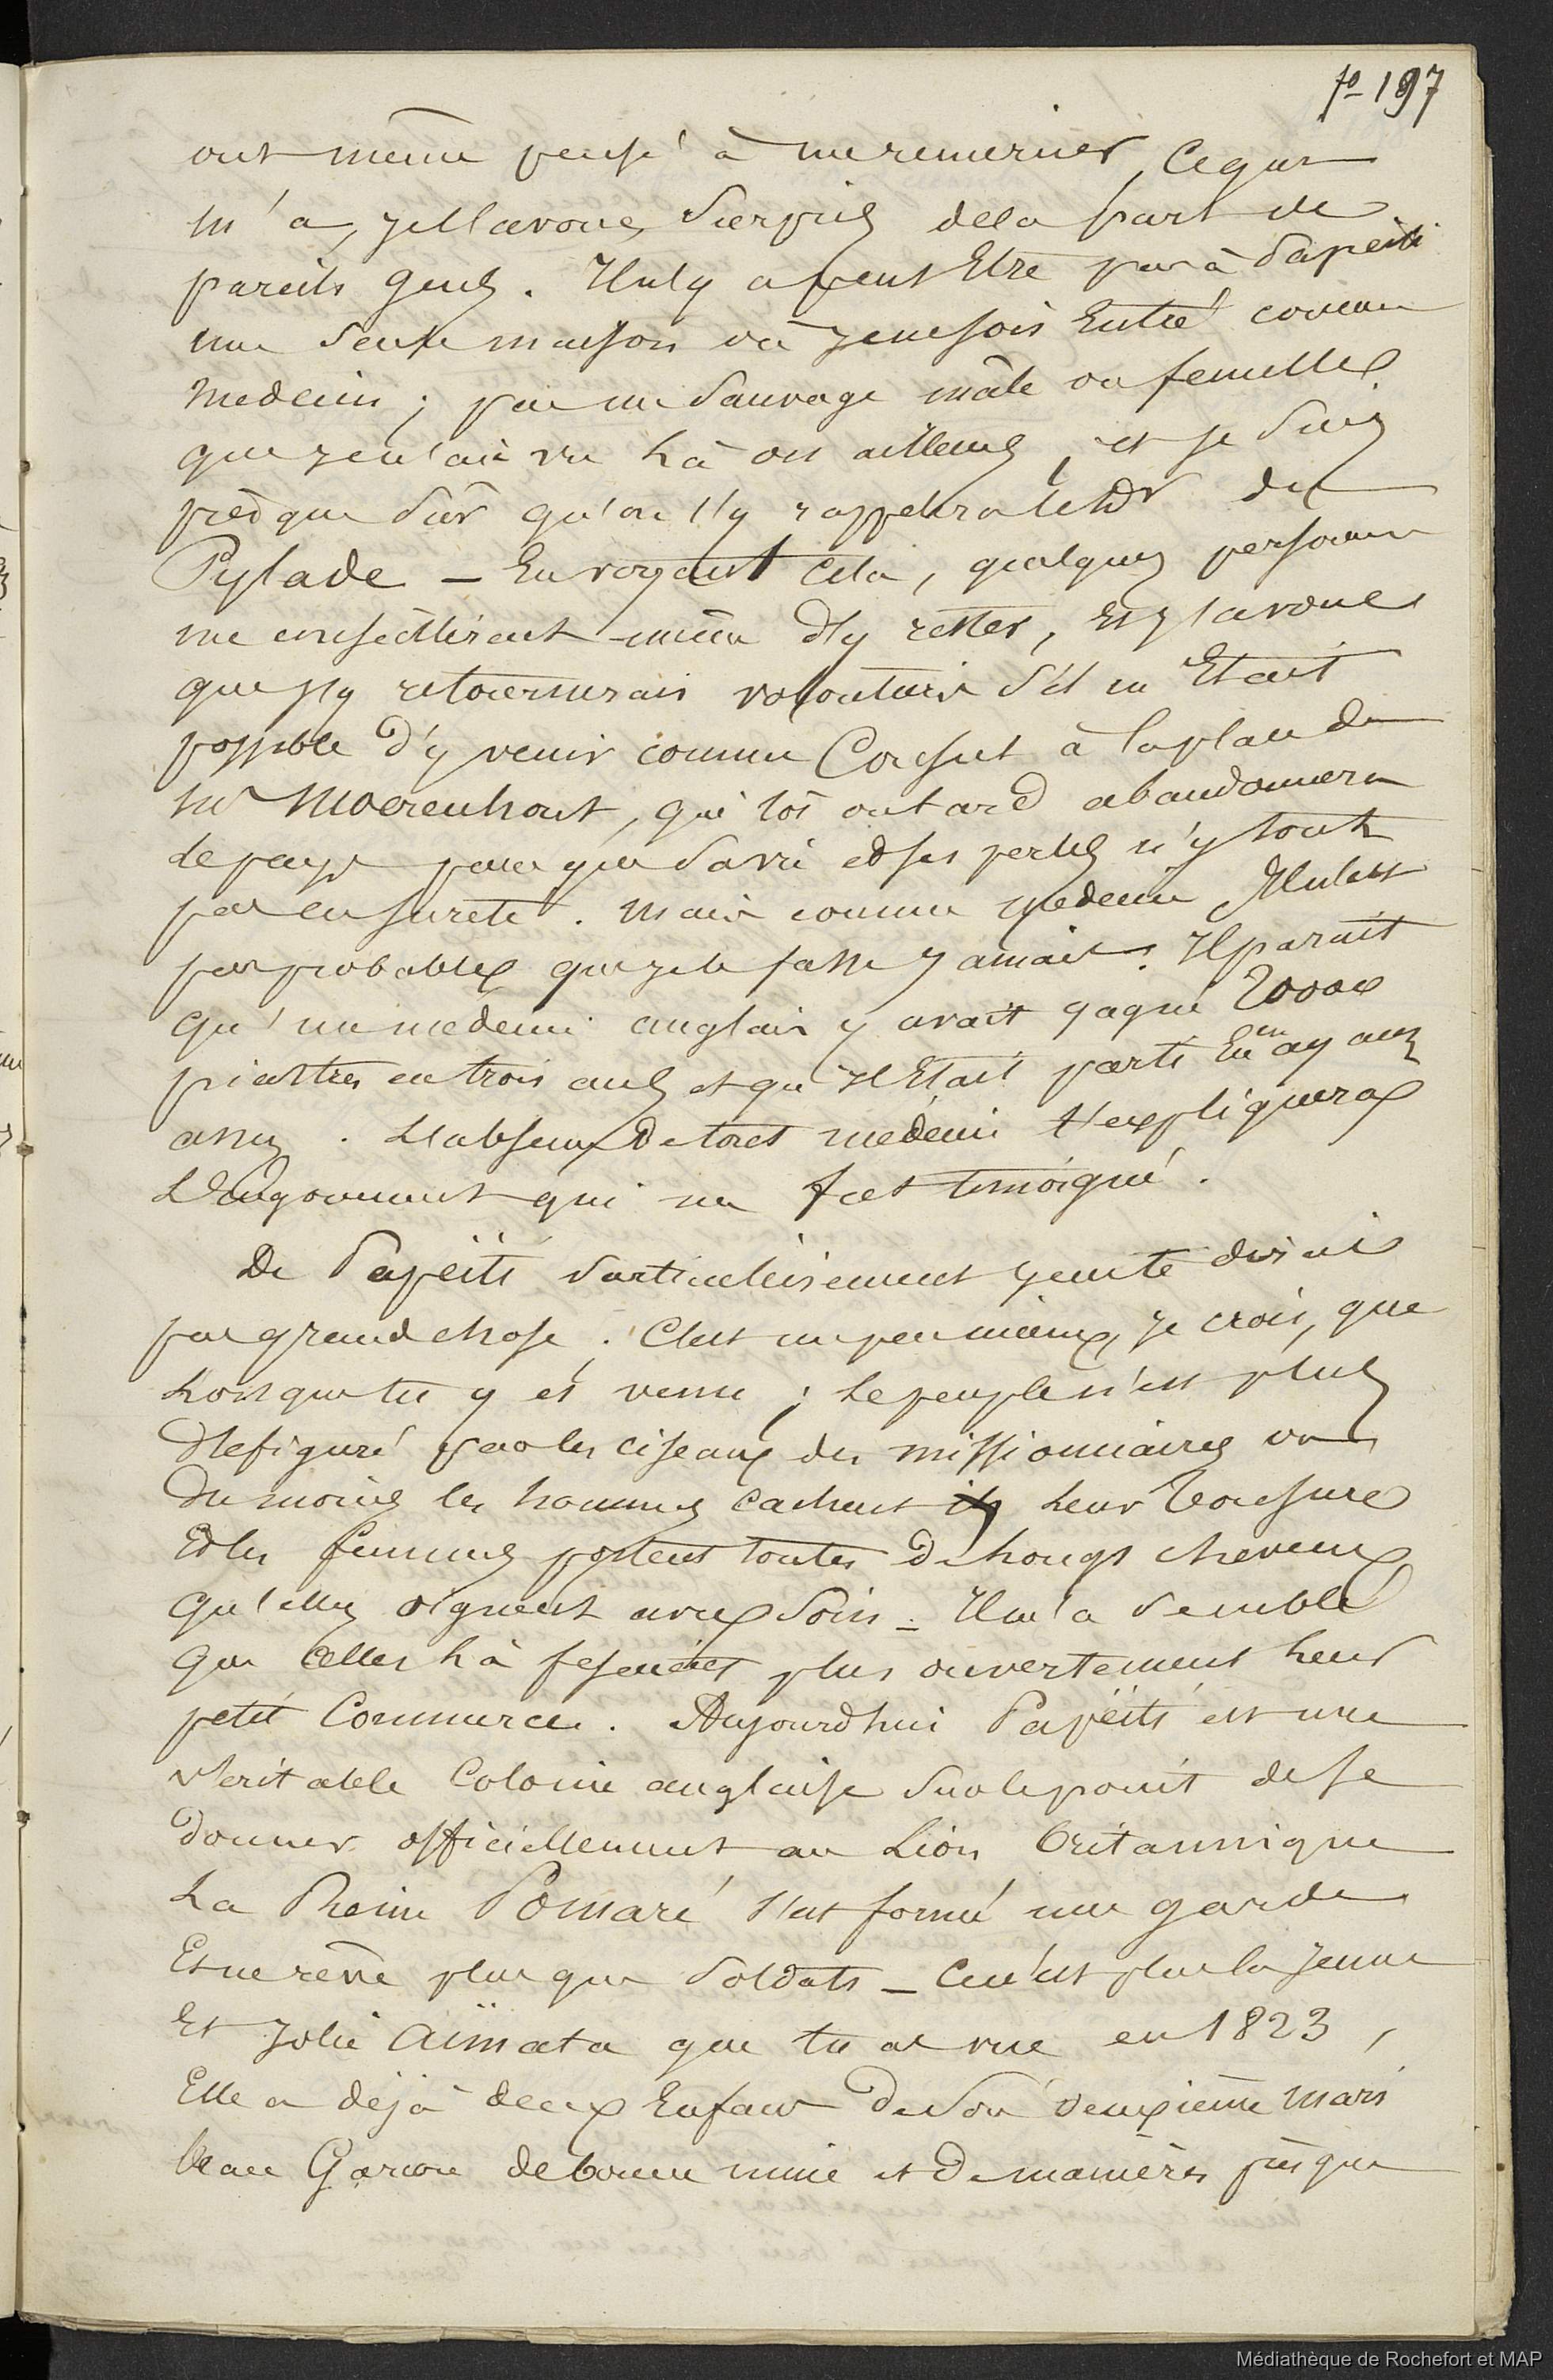 fo 197
ont même pensé à me remercier, Ce qui
m'a, je l'avoue, surpris de la part de
pareils gens. Il n'y a peut Etre pas à Papeïti
une seule maison où je ne sois Entré comme
medecin ; pas un sauvage mâle ou femelle
que je n'aie vu là ou ailleurs, et je suis
prèsque sûr qu'on s'y rappelera le Dr du
Pylade _ En voyant cela, quelques personnes
me conseillèrent même d'y rester, Et j'avoue
que j'y retournerais volontiers s'il m'Etait
possible d'y venir comme Consul à la place de
Mr Moerenhout, qui tôt ou tard abandonnera
le pays parce que sa vie et ses pertes n'y sont
pas en sureté. Mais comme medecin Il n'est
pas probable que je le fasse jamais. Il parait
qu'un medecin anglais y avait gagné 2000
piastres en trois ans et qu'il Etait parti En en ayant
assez. L'absence de tout medecin t'expliquera
L'Engouement qui me fut temoigné.
De Papeïti particulièrement je ne te dirais
pas grand chose. C'est un peu mieux, je crois, que
Lorsque tu y és venu ; Le peuple n'est plus
défiguré par les ciseaux des missionnaires ou
du moins les hommes cachent Leur Tonsure
Et les femmes portent toutes de Longs cheveux
qu'elles oignent avec soin _ Il m'a semblé
que Celles Là fesaient plus ouvertement Leur
petit Commerce. Aujourdhui Papeïti est une
Veritable Colonie anglaise sur le point de se
donner officiellement au Lion britannique
La Reine Pomaré s'est formé une garde
Et ne rève plus que soldats _ Ce n'est plus la jeune
Et jolie Aïmata que tu as vue en 1823,
Elle a déjà deux Enfans de son deuxième mari
beau Garcon de bonne mine et de manières prèsque
Médiathèque de Rochefort et MAP